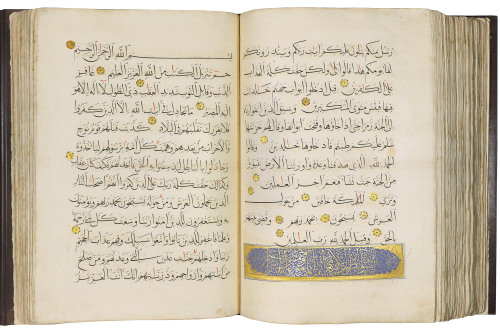 رسل منكم يتلون عليكم ايات ربكم وينذرونكم
لقاء يومكم هذا قالوا بلى ولكن حقت كلمة العذاب
على الكافرين قيل ادخلوا ابواب جهنم خالدين
فيها فبئس مثوى المتكبرين وسيق الذين اتقوا ربهم
الى الجنة زمرا حتى اذا جاؤها وفتحت ابوابها وقال لهم خزنتها
سلام عليكم طبتم فادخلوها خالدين وقالوا
الحمد لله الذي صدقنا وعده واورثنا الارض نتبوأ
من الجنة حيث نشاء فنعم اجر العاملين
وترى الملائكة حافين من حول
العرش يسبحون بحمد ربهم وقضي بينهم
بالحق وقيل الحمد لله رب العالمين
بسم الله الرحمن الرحيم
حم تنزيل الكتاب من الله العزيز العليم غافر
الذنب وقابل التوب شديد العقاب ذي الطول لا اله الا هو
اليه المصير ما يجادل في ايات الله الا الذين كفروا
فلا يغررك تقلبهم في البلاد كذبت قبلهم قوم نوح
والاحزاب من بعدهم وهمت كل امة برسولهم ليأخذوه
وجادلوا بالباطل ليدحضوا به الحق فاخذتهم فكيف كان عقاب
وكذلك حقت كلمة ربك على الذين كفروا انهم اصحاب النار
الذين يحملون العرش ومن حوله يسبحون بحمد ربهم ويؤمنون به
ويستغفرون للذين امنوا ربنا وسعت كل شيء رحمة
وعلما فاغفر للذين تابوا واتبعوا سبيلك وقهم عذاب الجحيم
ربنا وادخلهم جنات عدن التي وعدتهم ومن صلح
من ابائهم وازواجهم وذرياتهم انك انت العزيز